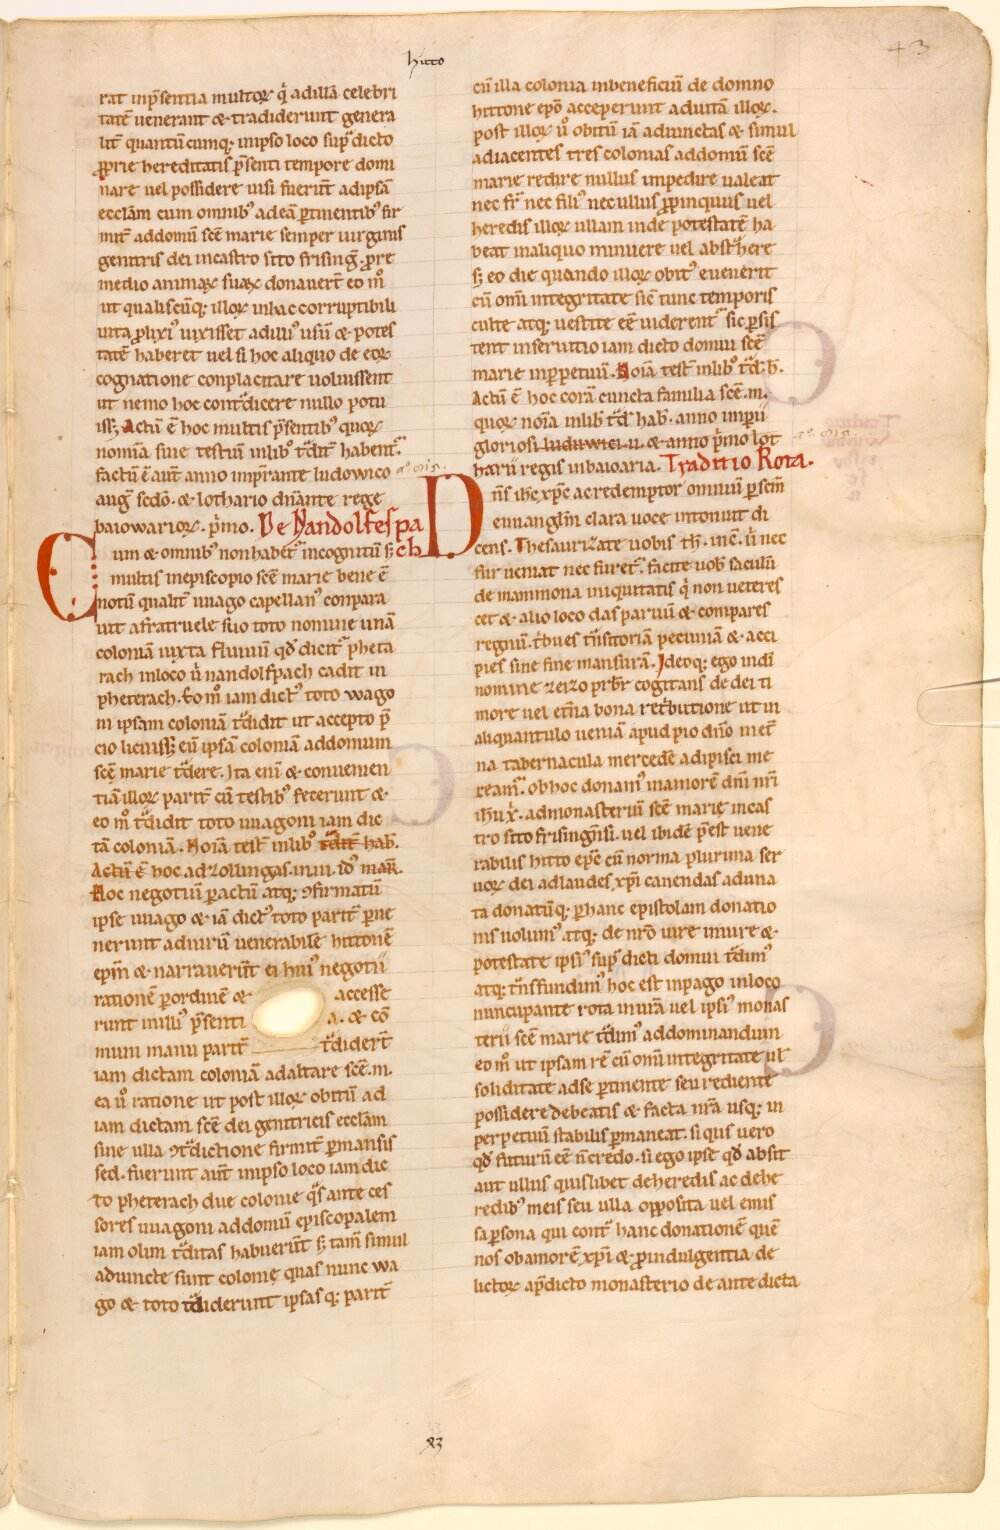 hitto
43
rat inp̄sentia multoꝝ q̇ adillā celebri
tatē uenerant & tradiderunt genera
lit̄ quantūcumq; inipso loco sup̄dicto
ꝓprie hereditatis p̄senti tempore domi
nare uel possidere uisi fuerūt adipsā
ecclām cum omnibꝰ adeā ꝑtinentibꝰ fir
mit̄ addomū scē marie semper uirginis
genitricis dei incastro sito frisinḡ ꝓ re
medio animaꝝ suaꝝ donauert̄ eo m̊
ut qualiscūq; illoꝝ inhac corruptibili
uita ꝓlixiꝰ uixisset adilliꝰ usū & potes
tatē haberet uel si hoc aliquo de eoꝝ
cognatione conplacitare uoluissent
ut nemo hoc cont̄dicere nullo potu
iss; Actū ē hoc multis p̄sentibꝰ quoꝝ
nomīa siue testiū inlibꝰ t̄dit̄ habent̄.
factū ē aūt anno imp̄rante ludowico aº. 815.
auḡ secdō. & lothario dn̄ante rege
baiowarioꝝ. p̄mo. De Nandolfespa
Cum & omnibꝰ non habet̄ incognitū s; ch
multis inepiscopio scē marie bene ē
notū qualit̄ uuago capellanꝰ conpara
uit afratruele suo toto nomine unā
coloniā iuxta fluuiū qd̄ dicit̄ pheta
rach inloco ū nandolfpach cadit in
pheterach. Eo m̊ iam dictꝰ toto wago
ni ipsam coloniā t̄didit ut accepto p̄
cio licuiss; eū ipsā coloniā addomum
scē marie t̄dere. Ita enī & conuenien
tiā illoꝝ parit̄ cū testibꝰ fecerunt &
eo m̊ t̄didit toto uuagoni iam dic
tā coloniā. Noīa test̄ inlibꝰ t̄dit̄ hab̄.
Actū ē hoc adzollingas. in.iii. idꝰ mar̄.
Hoc negotiū ꝑactū atq; ꝯfirmatū
ipse uuago & iā dictꝰ toto parit̄ ꝑue
nerunt aduirū uenerabilē hittonē
ep̄m & narrauerūt ei huiꝰ negotii
rationē ꝑordinē & accesse
runt inilliꝰ p̄senti a. & cō
muni manu parit̄ t̄didert̄
iam dictam coloniā adaltare scē .m.
ea ů ratione ut post illoꝝ obitū ad
iam dictam scē dei genitricis ecclām
sine ulla ꝯt̄dictione firmit̄ ꝑmansis
sed. fuerunt aūt inipso loco iam dic
to pheterach due colonie q̄s ante ces
sores uuagoni addomū episcopalem
iam olim t̄ditas habuerūt s; tam̄ simul
adiuncte sunt colonię quas nunc wa
go & toto t̄diderunt ipsas q; parit̄
cū illa colonia inbeneficiū de domno
hittone epō acceperunt aduitā illoꝝ.
post illoꝝ ů obitū iā adiunctas & simul
adiacentes tres colonias addomū scē
marie redire nullus impedire ualeat
nec fr̄ nec filiꝰ nec ullus ꝓpinquus uel
heredis illoꝝ ullam inde potestatē ha
beat inaliquo minuere uel abst̄here
s; eo die quando illoꝝ obitꝰ euenerit
cū omi integritate sic̄ tunc temporis
culte atq; uestite eē uiderent̄ sic ꝑsis
tent inseruitio iam dicto domui scē
marie inꝑpetuū. Noīa test̄ inlibꝰ t̄d. h̄.
Actū ē hoc corā cuncta familia scē .m.
quoꝝ noīa inlib̄ t̄d̄ hab̄. anno imꝑii
gloriosi ludwici .ii. & anno p̄mo lot aº. 815.
harii regis inbaioaria. Traditio Rota.
Dn̄s ihc̄ xp̄c ac redemptor omniū ꝑ scm̄
euuanglm̄ clara uoce intonuit di
cens. Thesaurizate uobis th̄. inc̄. ū nec
fur ueniat nec furet̄. facite uob̄ sacculū
de mammona iniquitatis q̇ non ueteres
cet & alio loco das paruū & compares
regnū. t̄bues t̄nsitoriā pecuniā & acci
pies sine fine mansurā. Ideoq; ego indī
nomine zeizo prb̄r cogitans de dei ti
more uel et̄na bona ret̄butione ut in
aliquantulo ueniā apud pio dn̄o in et̄
na tabernacula mercedē adipisci me
ream̄. ob hoc donamꝰ inamorē dn̄i nr̄i
ihū x̄. admonasteriū scē marię incas
tro sito frisingn̄si. uel ibidē p̄est uene
rabilis hitto ep̄c cū norma plurima ser
uoꝝ dei adlaudes xp̄i canendas aduna
ta donatūq; ꝑ hanc epistolam donatio
nis uolumꝰ atq; de nr̄o iure iniure &
potestate ipsiꝰ sup̄ dicti domui t̄dimꝰ
atq; t̄nsfundimꝰ hoc est inpago inloco
nuncupante rota inmrā uel ipsiꝰ monas
terii scē marie t̄dimꝰ addominandum
eo m̊ ut ipsam rē cū omi integritate ul̄
soliditate adse ꝑtinente seu rediente
possidere debeatis & facta nr̄a usq; in
perpetuū stabilis ꝑmaneat. si quis uero
qd̄ futurū eē n̄ credo. si ego ipse qd̄ absit
aut ullus quislibet deheredis ac dehe
redibꝰ meis seu ulla opposita uel emis
sa ꝑsona qui cont̄ hanc donationē quē
nos obamorē xp̄i & ꝓ indulgentia de
lictoꝝ ap̄dicto monasterio de ante dicta
83